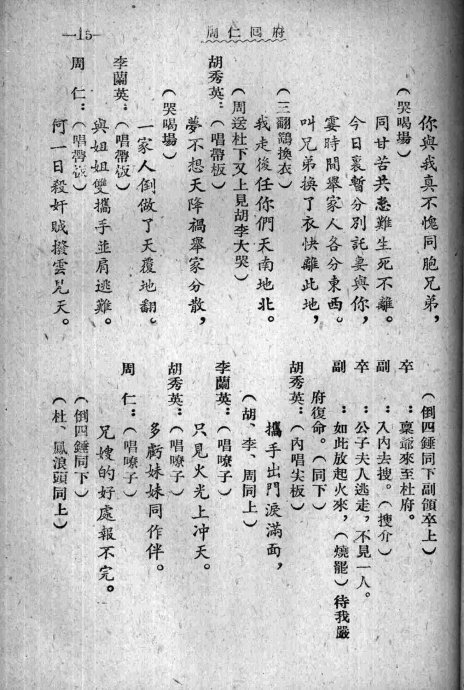 —15—
周仁囘府
你與我真不愧同胞兄弟，
（哭喝場）
同甘苦共患難生死不離。
今日裏暫分別託妻與你，
霎時間舉家人各分東西。
叫兄弟換了衣快離此地，
（三翻鷂換衣）
我走後任你們天南地北。
（周送杜下又上見胡李大哭）
胡秀英：（唱帶板）
夢不想天降禍舉家分散，
（哭喝場）
一家人倒做了天覆地翻。
李蘭英：（唱帶板）
與姐姐雙攜手並肩逃難。
周　仁：（唱帶板）
何一日殺奸賊撥雲見天。
（倒四錘同下副領卒上）
卒　：稟爺來至杜府。
副　：入內去搜。（搜介）
卒　：公子夫人逃走，不見一人。
副　：如此放起火來，（燒罷）待我嚴
府復命。（同下）
胡秀英：（內唱尖板）
攜手出門淚滿面，
（胡、李、周同上）
李蘭英：（唱嘹子）
只見火光上冲天。
胡秀英：（唱嘹子）
多虧妹妹同作伴。
周　仁：（唱嘹子）
兄嫂的好處報不完。
（倒四錘同下）
（杜、鳳浪頭同上）